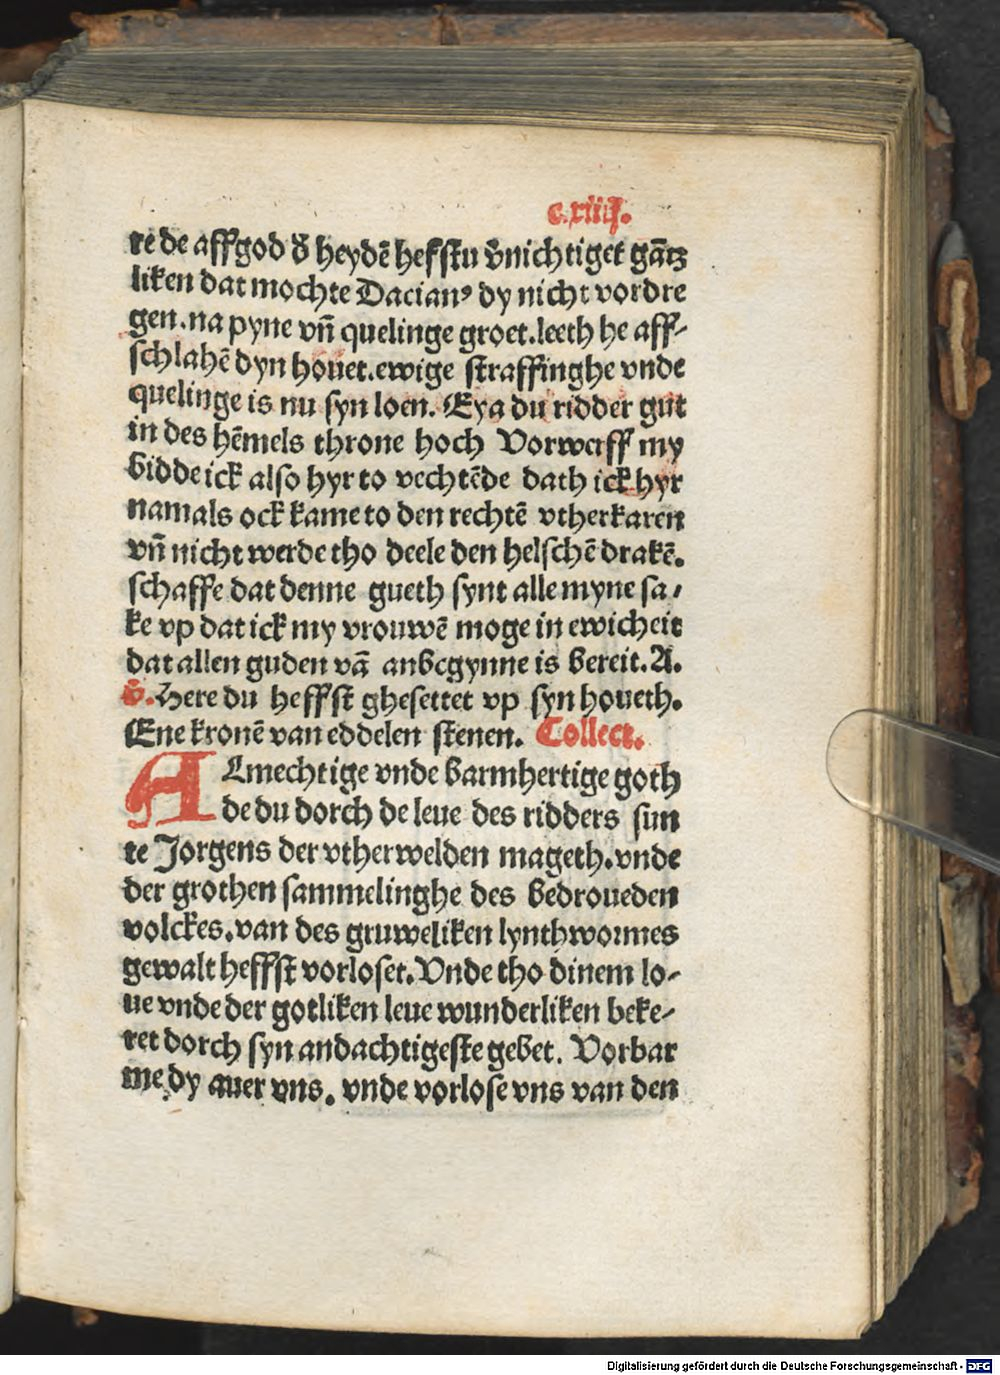 c.xiiij.
te de affgod d̄ heydē hefstu v̄nichtiget gātz
liken dat mochte Dacianꝰ dy nicht vordre
gen. na pyne vn̄ quelinge groet. leeth he aff-
schlahē dyn houet. ewige straffinghe vnde
quelinge is nu syn loen. Eya du ridder gut
in des hēmels throne hoch Vorwerff my
bidde ick also hyr to vechtēde dath ick hyr
namals ock kame to den rechtē vtherkaren
vn̄ nicht werde tho deele den helschē drakē.
schaffe dat denne gueth synt alle myne sa-
ke vp dat ick my vrouwē moge in ewicheit
dat allen guden vā anbegynne is bereit. A.
v̄. Here du heffst ghesettet vp syn houeth.
Ene kronē van eddelen stenen. Collect.
ALmechtige vnde barmhertige goth
de du dorch de leue des ridders sun
te Jorgens der vtherwelden mageth. vnde
der grothen sammelinghe des bedroueden
volckes. van des gruweliken lynthwormes
gewalt heffst vorloset. Vnde tho dinem lo-
ue vnde der gotliken leue wunderliken beke-
ret dorch syn andachtigeste gebet. Vorbar
me dy auer vns. vnde vorlose vns van den
Digitalisierung gefördert durch die Deutsche Forschungsgemeinschaft - DFG